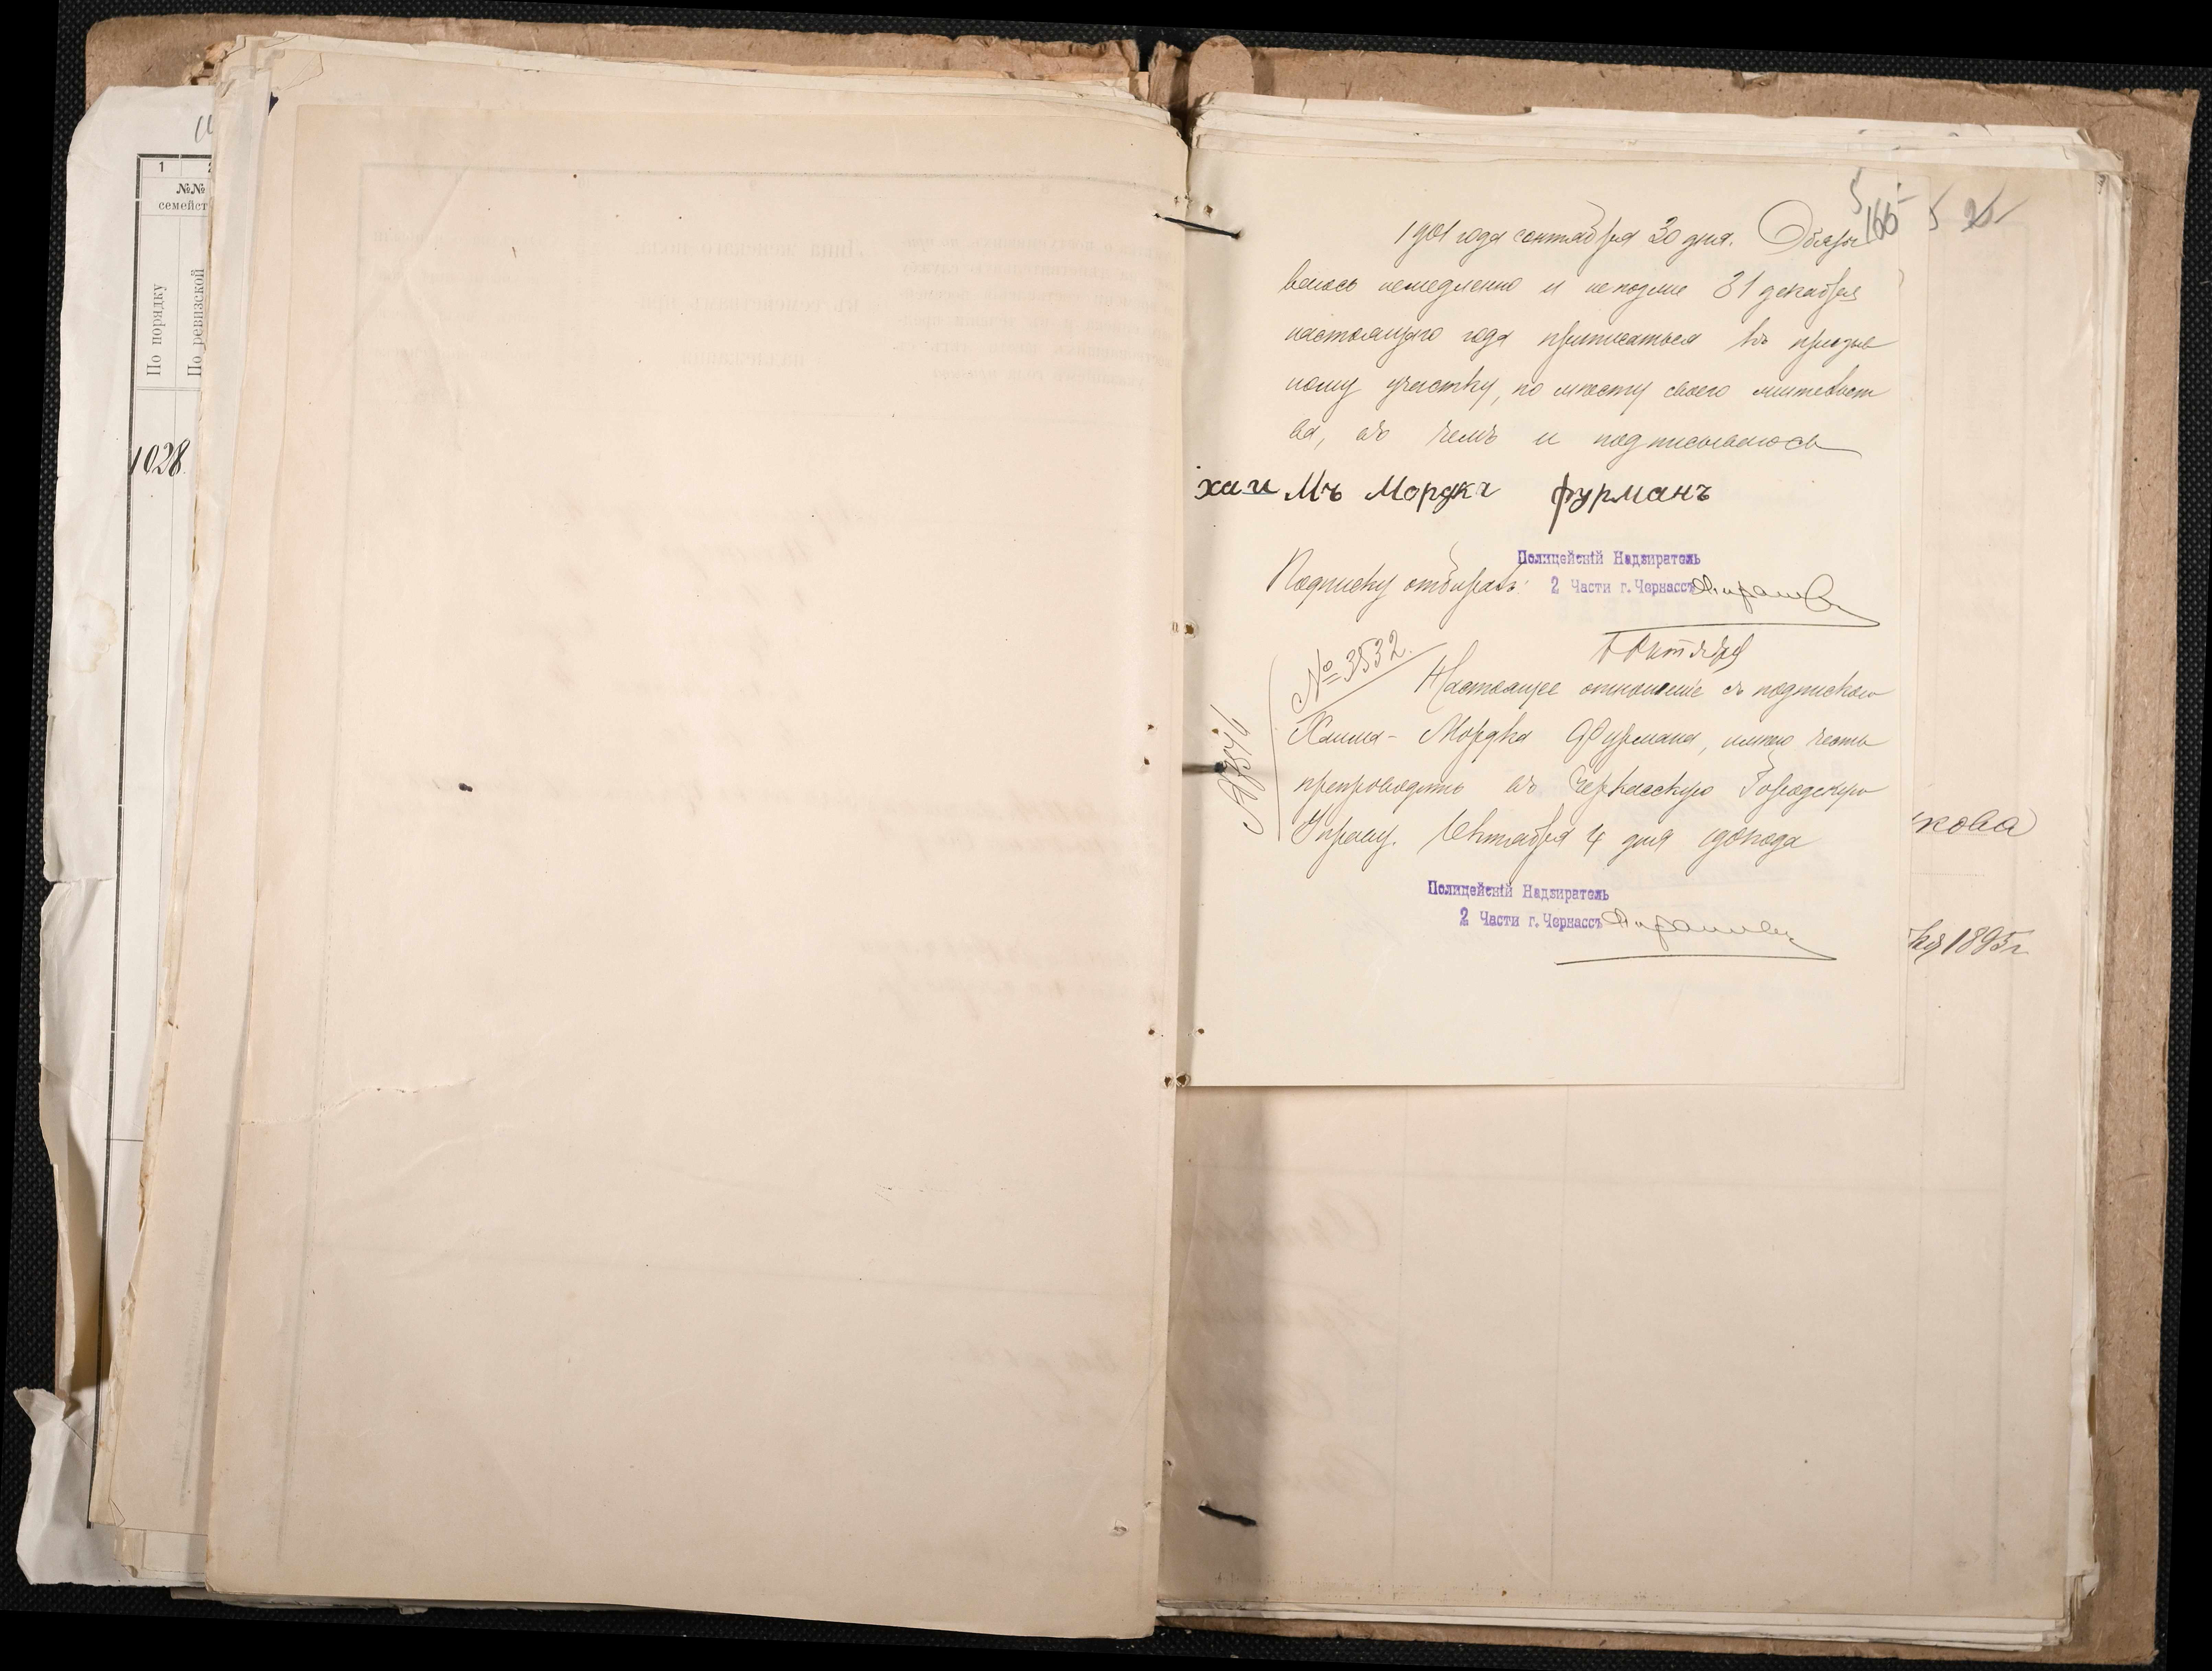 1
№№
семейст
По порядку
По ревизской
1028.
166
1901 года сентября 30 дня. Обязы
ваюсь немедленно и непозже 31 декабря
настоящаго года приписаться къ призыв
ному участку, по мѣсту своего жительст
ва, въ чемъ и подписываюсь
хаи Мъ Мордкг фурманъ
Полицейскій Надзиратель
Подписку отбиралъ: 2 Части г. Черкассъ
№ 3532.
Октября
Настоящее отношеніе съ подпискою
Хаима-Мордка Фурмана, имѣю честь
препроводить въ Черкасскую Городскую
Управу. Октября 4 дня 1901 года
Полицейскій Надзиратель
2 Части г. Черкассъ
кова
1895 г.